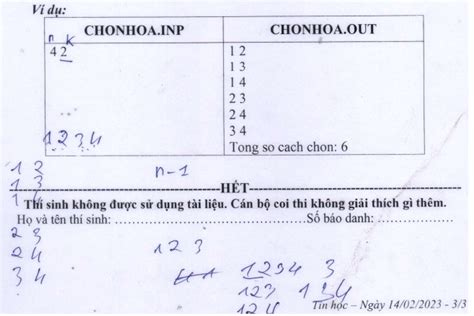 Ví dụ:
n k
CHONHOA.INP CHONHOA.OUT
4 2 1 2
1 3
1 4
2 3
2 4
1 2 3 4 3 4
Tong so cach chon: 6
1 2 n-1
1 3
HẾT
1 4
Thí sinh không được sử dụng tài liệu. Cán bộ coi thi không giải thích gì thêm.
Họ và tên thí sinh: Số báo danh:
2 3
2 4 1 2 3
3 4 1 2 3 4 3
1 2 3 1 3 4
1 2 4 Tin học – Ngày 14/02/2023 - 3/3